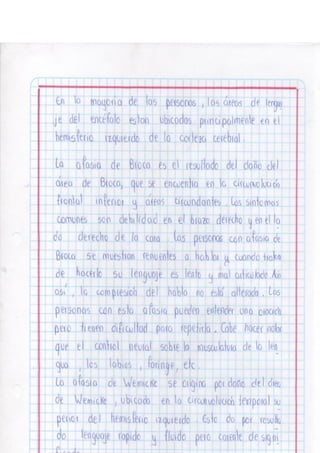 En la mayoria de las personas, las áreas de lengua
je del encéfalo estan ubicados principalmente en el
hemisferio izquierdo de la corteza cerebral.
La afasia de Broca es el resultado del daño del
área de Broca, que se encuentra en la circunvolución
frontal inferior y áreas circundantes. Los sintomas
comunes son debilidad en el brazo derecho y en el la
do derecho de la cara. Las personas con afasia de
Broca se muestran renuentes a hablar y cuando tratan
de hacerlo su lenguaje es lento y mal articulado. Aún
asi, la compresión del habla no está alterada. Las
personas con esta afasia pueden entender una oración
pero tienen dificultad para repetirla. Cabe hacer notar
que el control neural sobre la musculatura de la len
gua, los labios, faringe, etc.
La afasia de Wernicke se origina por daño del área
de Wernicke, ubicada en la circunvolución temporal su
perior del hemisferio izquierdo. Esto da por resulta
do lenguaje rapido y fluido pero carente de signi